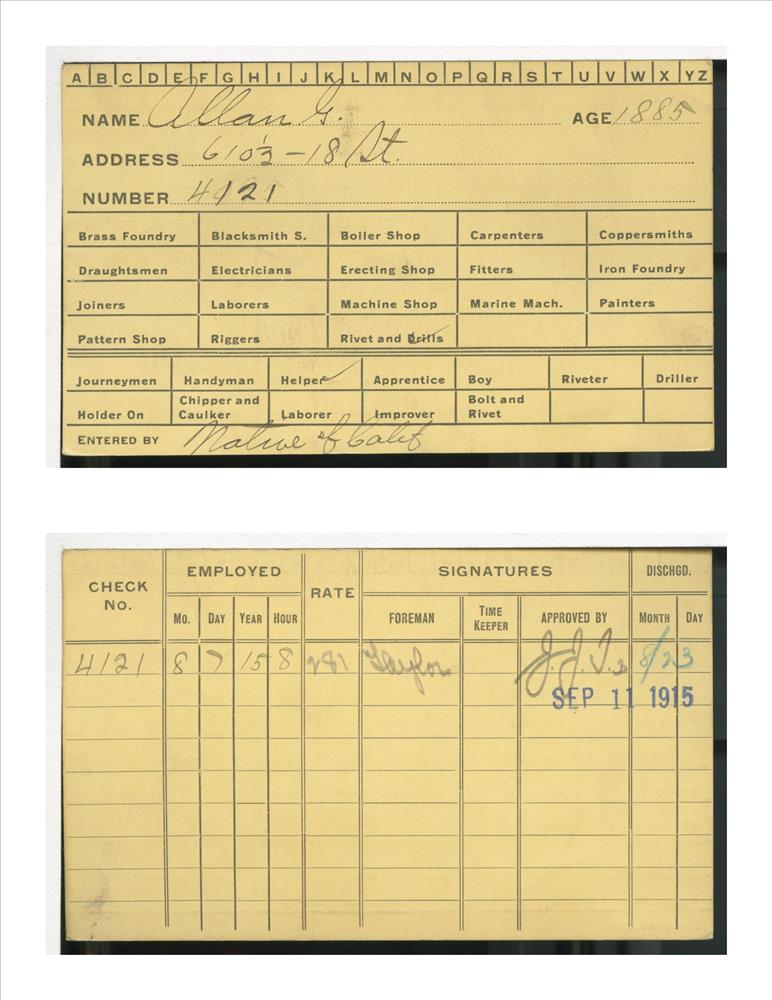 A B C D E F G H I J K L M N O P Q R S T U V W X Y Z
NAME Allan G. AGE 1885
ADDRESS 610½ - 18 St.
NUMBER 4121
Brass Foundry Blacksmith S. Boiler Shop Carpenters Coppersmiths
Draughtsmen Electricians Erecting Shop Fitters Iron Foundry
Joiners Laborers Machine Shop Marine Mach. Painters
Pattern Shop Riggers Rivet and Drills
Journeymen Handyman Helper Apprentice Boy Riveter Driller
Holder On Chipper and Caulker Laborer Improver Bolt and Rivet
ENTERED BY Native of Calif
CHECK No. EMPLOYED RATE SIGNATURES DISCHGD.
Mo. DAY YEAR HOUR FOREMAN TIME KEEPER APPROVED BY MONTH DAY
4121 8 7 15 8 281 Taylor 8/23
SEP 11 1915